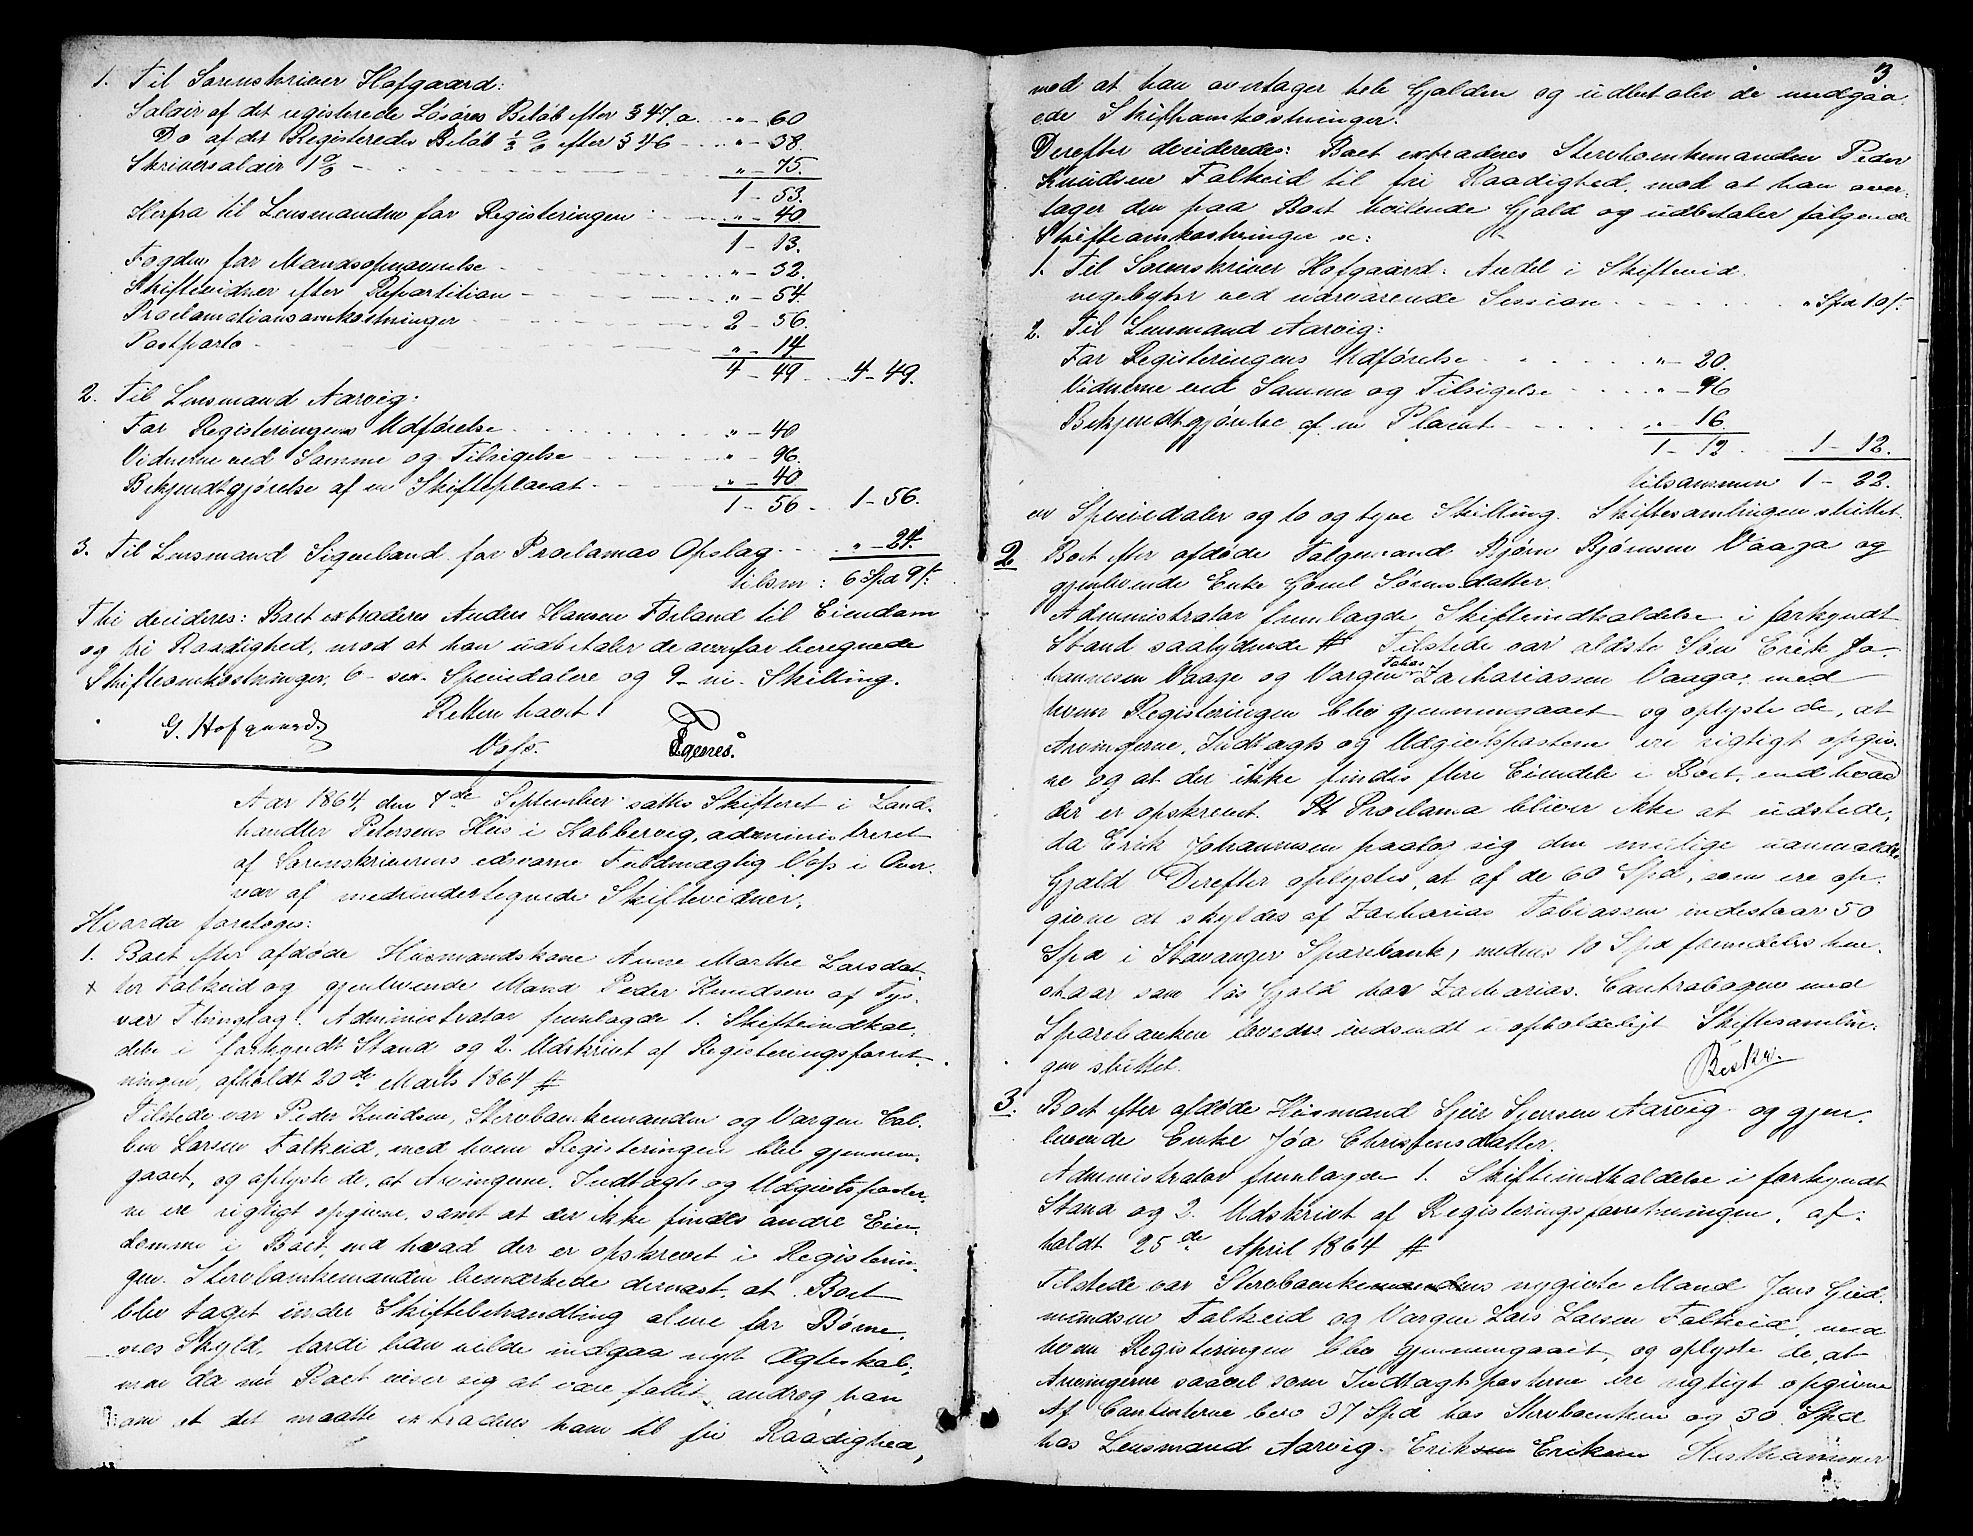 1. Til Sorenskriver Hofgaard:
Salair af det registerede Løsøres Beløb efter § 47. a. „ - 60
Do af det Registeredes Beløb ½ % efter § 46 „ - 38.
Skriversalair 1 % „ - 75.
1 - 53.
Herfra til Lensmanden for Registeringen „ - 40
1 - 13.
Fogden for Mandsopnævnelse „ - 32.
Skiftevidner efter Repartition „ - 54.
Proclamationsomkostninger 2 - 56.
Postporto „ - 14
4 - 49 4 - 49.
2. Til Lensmand Aarvig:
For Registeringens Udførelse „ - 40
Vidnerne ved Samme og Tilsigelse „ - 96.
Bekjendtgjørelse af en Skifteplacat „ - 40
1 - 56 1 - 56.
3. Til Lensmand Signeland for Proclamas Opslag „ - 24.
tilsm: 6 Spd 9 ß:
Thi decideres: Boet extraderes Anders Hansen Førland til Eiendom
og fri Raadighed, mod at han udbetaler de ovenfor beregnede
Skifteomkostninger, 6 - sex - Speciedalere og 9 - ni - Skilling.
Retten hævet!
G. Hofgaard.
Vofs. Egenes.
Aar 1864, den 7de September sattes Skifteret i Land-
handler Petersens Hus i Kobbervig, administreret
af Sorenskriverens edsvorne Fuldmægtig Vofs i Over-
vær af medundertegnede Skiftevidner,
Hvorda foretoges:
1. Boet efter afdøde Husmandskone Anne Marthe Larsdat-
x ter Falkeid og gjenlevende Mand Peder Knudsen af Tys-
vær Thinglag. Administrator fremlagde 1. Skifteindkal-
delse i forkyndt Stand og 2. Udskrivt af Registeringsforret-
ningen, afholdt 20de Marts 1864 #
Tilstede var Peder Knudsen, Stervboenkemanden og Vorgen Col-
ben Larsen Falkeid, med hvem Registeringen blev gjennem-
gaaet, og oplyste de, at Arvingerne, Indtægts og Udgivtsposter-
ne ere rigtigt opgivne, samt at der ikke findes andre Eien-
domme i Boet, end hvad der er opskrevet i Registerin-
gen. Stervboenkemanden bemærkede dernæst, at Boet
blev taget under Skiftebehandling alene for Børne-
nes Skyld, fordi han vilde indgaa nyt Ægteskab,
men da nu Boet viser sig at være fallit, androg han
om at det maatte extraderes ham til fri Raadighed,
3
mod at han overtager hele Gjælden og udbetaler de medgaa-
ede Skifteomkostninger.
Derefter decideredes: Boet extraderes Stervboenkemanden Peder
Knudsen Falkeid til fri Raadighed, mod at han over-
tager den paa Boet hvilende Gjæld og udbetaler følgende
Skifteomkostninger sc:
1. Til Sorenskriver Hofgaard: Andel i Skiftevid-
negebyhr ved nærværende Session „ Spd 10 ß:
2. Til Lensmand Aarvig:
For Registeringens Udførelse „ - 20.
Vidnerne ved Samme og Tilsigelse „ - 96
Bekjendtgjørelse af en Placat „ - 16.
1 - 12 1 - 12.
tilsammen 1 - 22.
en Speciedaler og to og tyve Skilling. Skiftesamlingen sluttet.
2 Boet efter afdøde Følgemand Bjørn Bjørnsen Vaaga og
gjenlevende Enke Goniel Sørensdatter.
Administrator fremlagde Skifteindkaldelse i forkyndt
Stand saalydende # Tilstede var ældste Søn Erik Jo-
hannesen Vaage og Vorgen Tobias Zachariassen Vaage, med
hvem Registeringen blev gjennemgaaet og oplyste de, at
Arvingerne, Indtægts og Udgivtsposterne ere rigtigt opgiv-
ne og at der ikke findes flere Eiendele i Boet, end hvad
der er opskrevet. Proclama bliver ikke at udstede,
da Erik Johannesen paatog sig den mulige uanmeldte
Gjæld. Derefter oplystes, at af de 60 Spd, som ere op-
givne at skyldes af Zacharias Tobiassen indestaar 50
Spd i Stavanger Sparebank, medens 10 Spd fremdeles hen-
staar som løs Gjæld hos Zacharias. Contrabogen med
Sparebanken lovedes indsendt uopholdeligt. Skiftesamlin-
gen sluttet.
Beskr.
3. Boet efter afdøde Husmand Sjur Sjursen Aarvig og gjen-
levende Enke Jøa Christensdatter.
Administrator fremlagde 1. Skifteindkaldelse i forkyndt
Stand og 2. Udskrivt af Registeringsforretningen, af-
holdt 25de April 1864 #
Tilstede var Stervboenkemandens nygivte Mand Jens Gud-
mundsen Falkeid og Vorgen Lars Larsen Falkeid, med
hvem Registeringen blev gjennemgaaet, og oplyste de, at
Arvingerne saavel som Indtægtsposterne ere rigtigt opgivne
Af Contanterne bero 37 Spd hos Stervboenken og 30 Spd
hos Lensmand Aarvig. Eriksen Eriksen Hesthammer